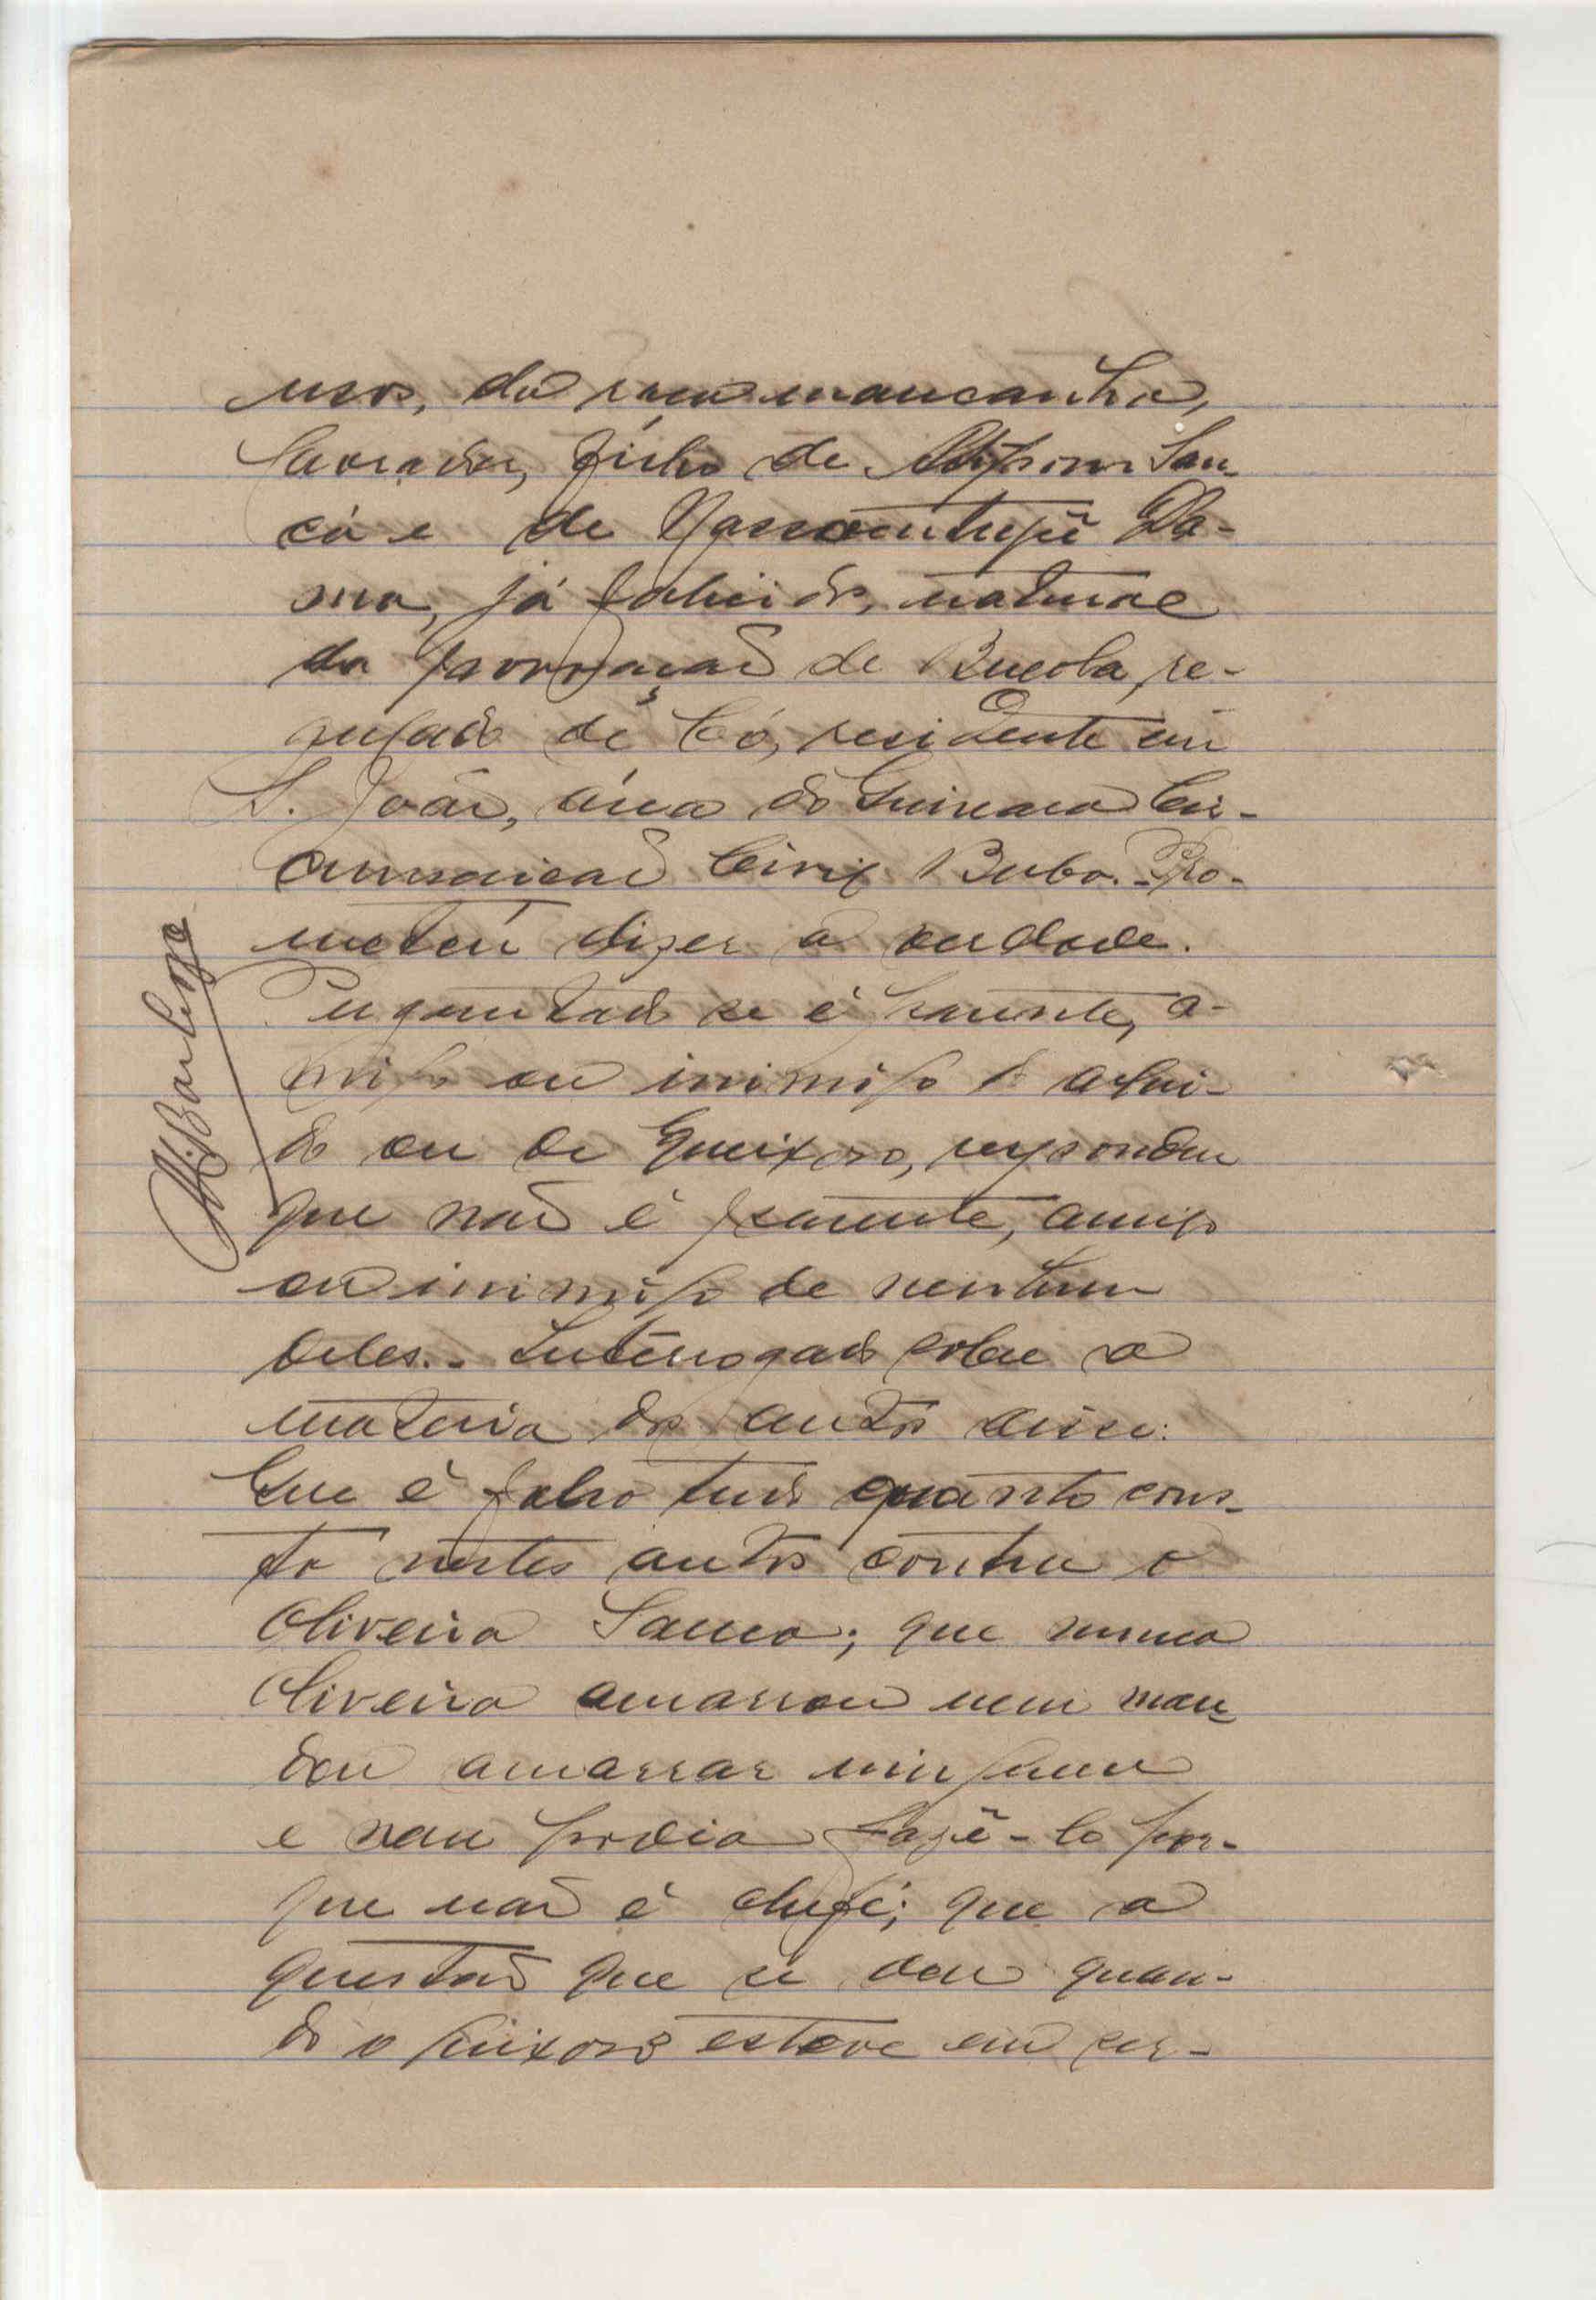 usos, da raça mancanha,
lavrador, filho de San-
cá e de Da-
ma, já falecidos, natural
da povoação de Bucola, re-
gulado de Có, residente em
S. João, área do Cir-
cunscrição Civil Bubo. Pro-
meteu dizer a verdade.
Perguntado se é parente, a-
migo ou inimigo do argui-
do ou do queixoso, respondeu
que não é parente, amigo
ou inimigo de nenhum
deles. Interrogado sobre a
materia dos autos disse:
Que é falso tudo quanto cons-
ta nestes autos contra o
Oliveira Sanca; que nunca
Oliveira amarrou nem man-
dou amarrar ninguem
e nem podia fazê-lo por-
que não é chefe; que a
questão que se deu quan-
do o queixoso esteve em ser-